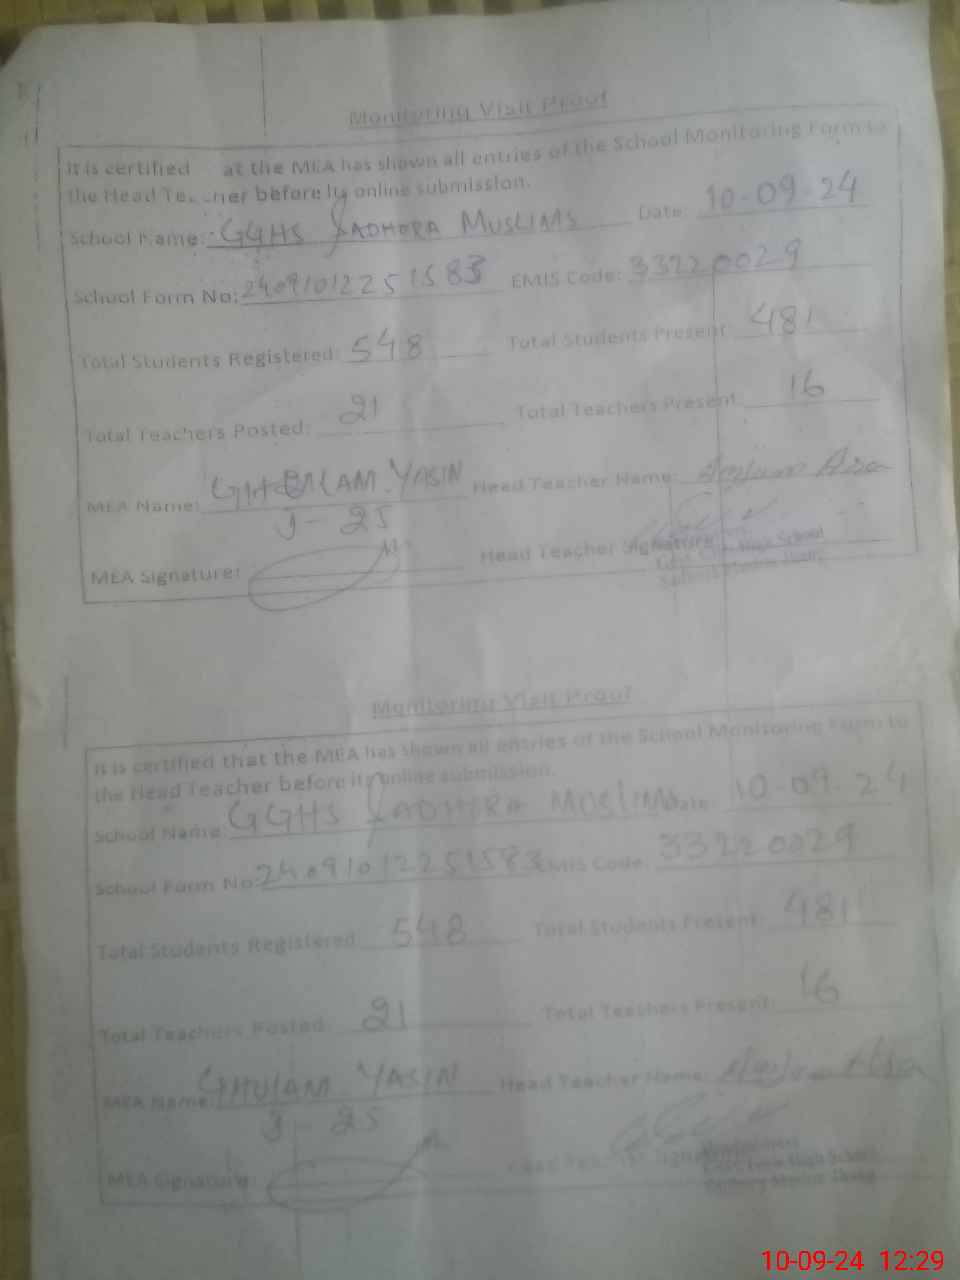 Monitoring Visit Proof
It is certified at the MEA has shown all entries of the School Monitoring Form to
the Head Teacher before its online submission.
School Name: GGHS SADHORA MUSLIMS Date: 10-09-24
School Form No: 2409101225 1583 EMIS Code: 33220029
Total Students Registered: 548 Total Students Present: 481
Total Teachers Posted: 21 Total Teachers Present: 16
MEA Name: GHULAM YASIN Head Teacher Name:
J-25
MEA Signature: Head Teacher Signature
High School
Monitoring Visit Proof
It is certified that the MEA has shown all entries of the School Monitoring Form to
the Head Teacher before its online submission.
School Name: GGHS SADHORA MUSLIMS Date: 10-09-24
School Form No: 24091012251583 EMIS Code: 33220029
Total Students Registered: 548 Total Students Present: 481
Total Teachers Posted: 21 Total Teachers Present: 16
MEA Name: GHULAM YASIN Head Teacher Name:
J-25
MEA Signature: Head Teacher Signature
High School
10-09-24 12:29